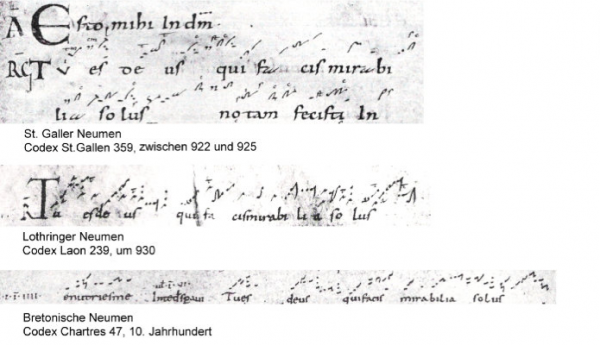 A Esto mihi In dm̄.
RG Tu es de us qui fa cis mirabi
lia so lus notam fecisti In
St. Galler Neumen
Codex St.Gallen 359, zwischen 922 und 925
Tu es de us qui fa cis mirabi li a so lus
Lothringer Neumen
Codex Laon 239, um 930
Tu es deus qui facis mirabilia solus
Bretonische Neumen
Codex Chartres 47, 10. Jahrhundert